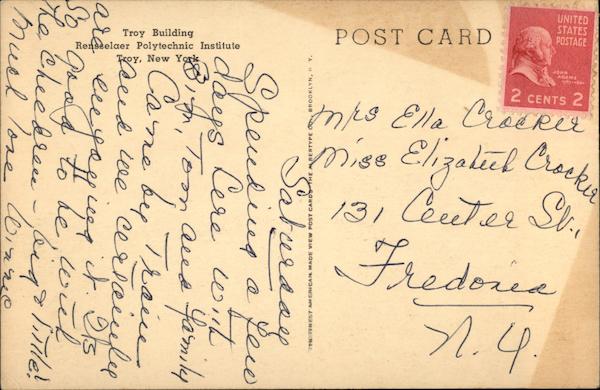 Troy Building
Rensselaer Polytechnic Institute
Troy, New York
POST CARD
UNITED
STATES
POSTAGE
JOHN
ADAMS
2 CENTS 2
Mrs Ella Crocker
Miss Elizabeth Crocker
131 Center St.,
Fredonia
N.Y.
Saturday
Spending a few
days here with
Bim, Tom and family
Came by Train
and we certainly
are enjoying it. It's
So good to be with
the children - big & little.
Much love
AMERICAN MADE VIEW POST CARDS THE ALBERTYPE CO., BROOKLYN, N. Y.